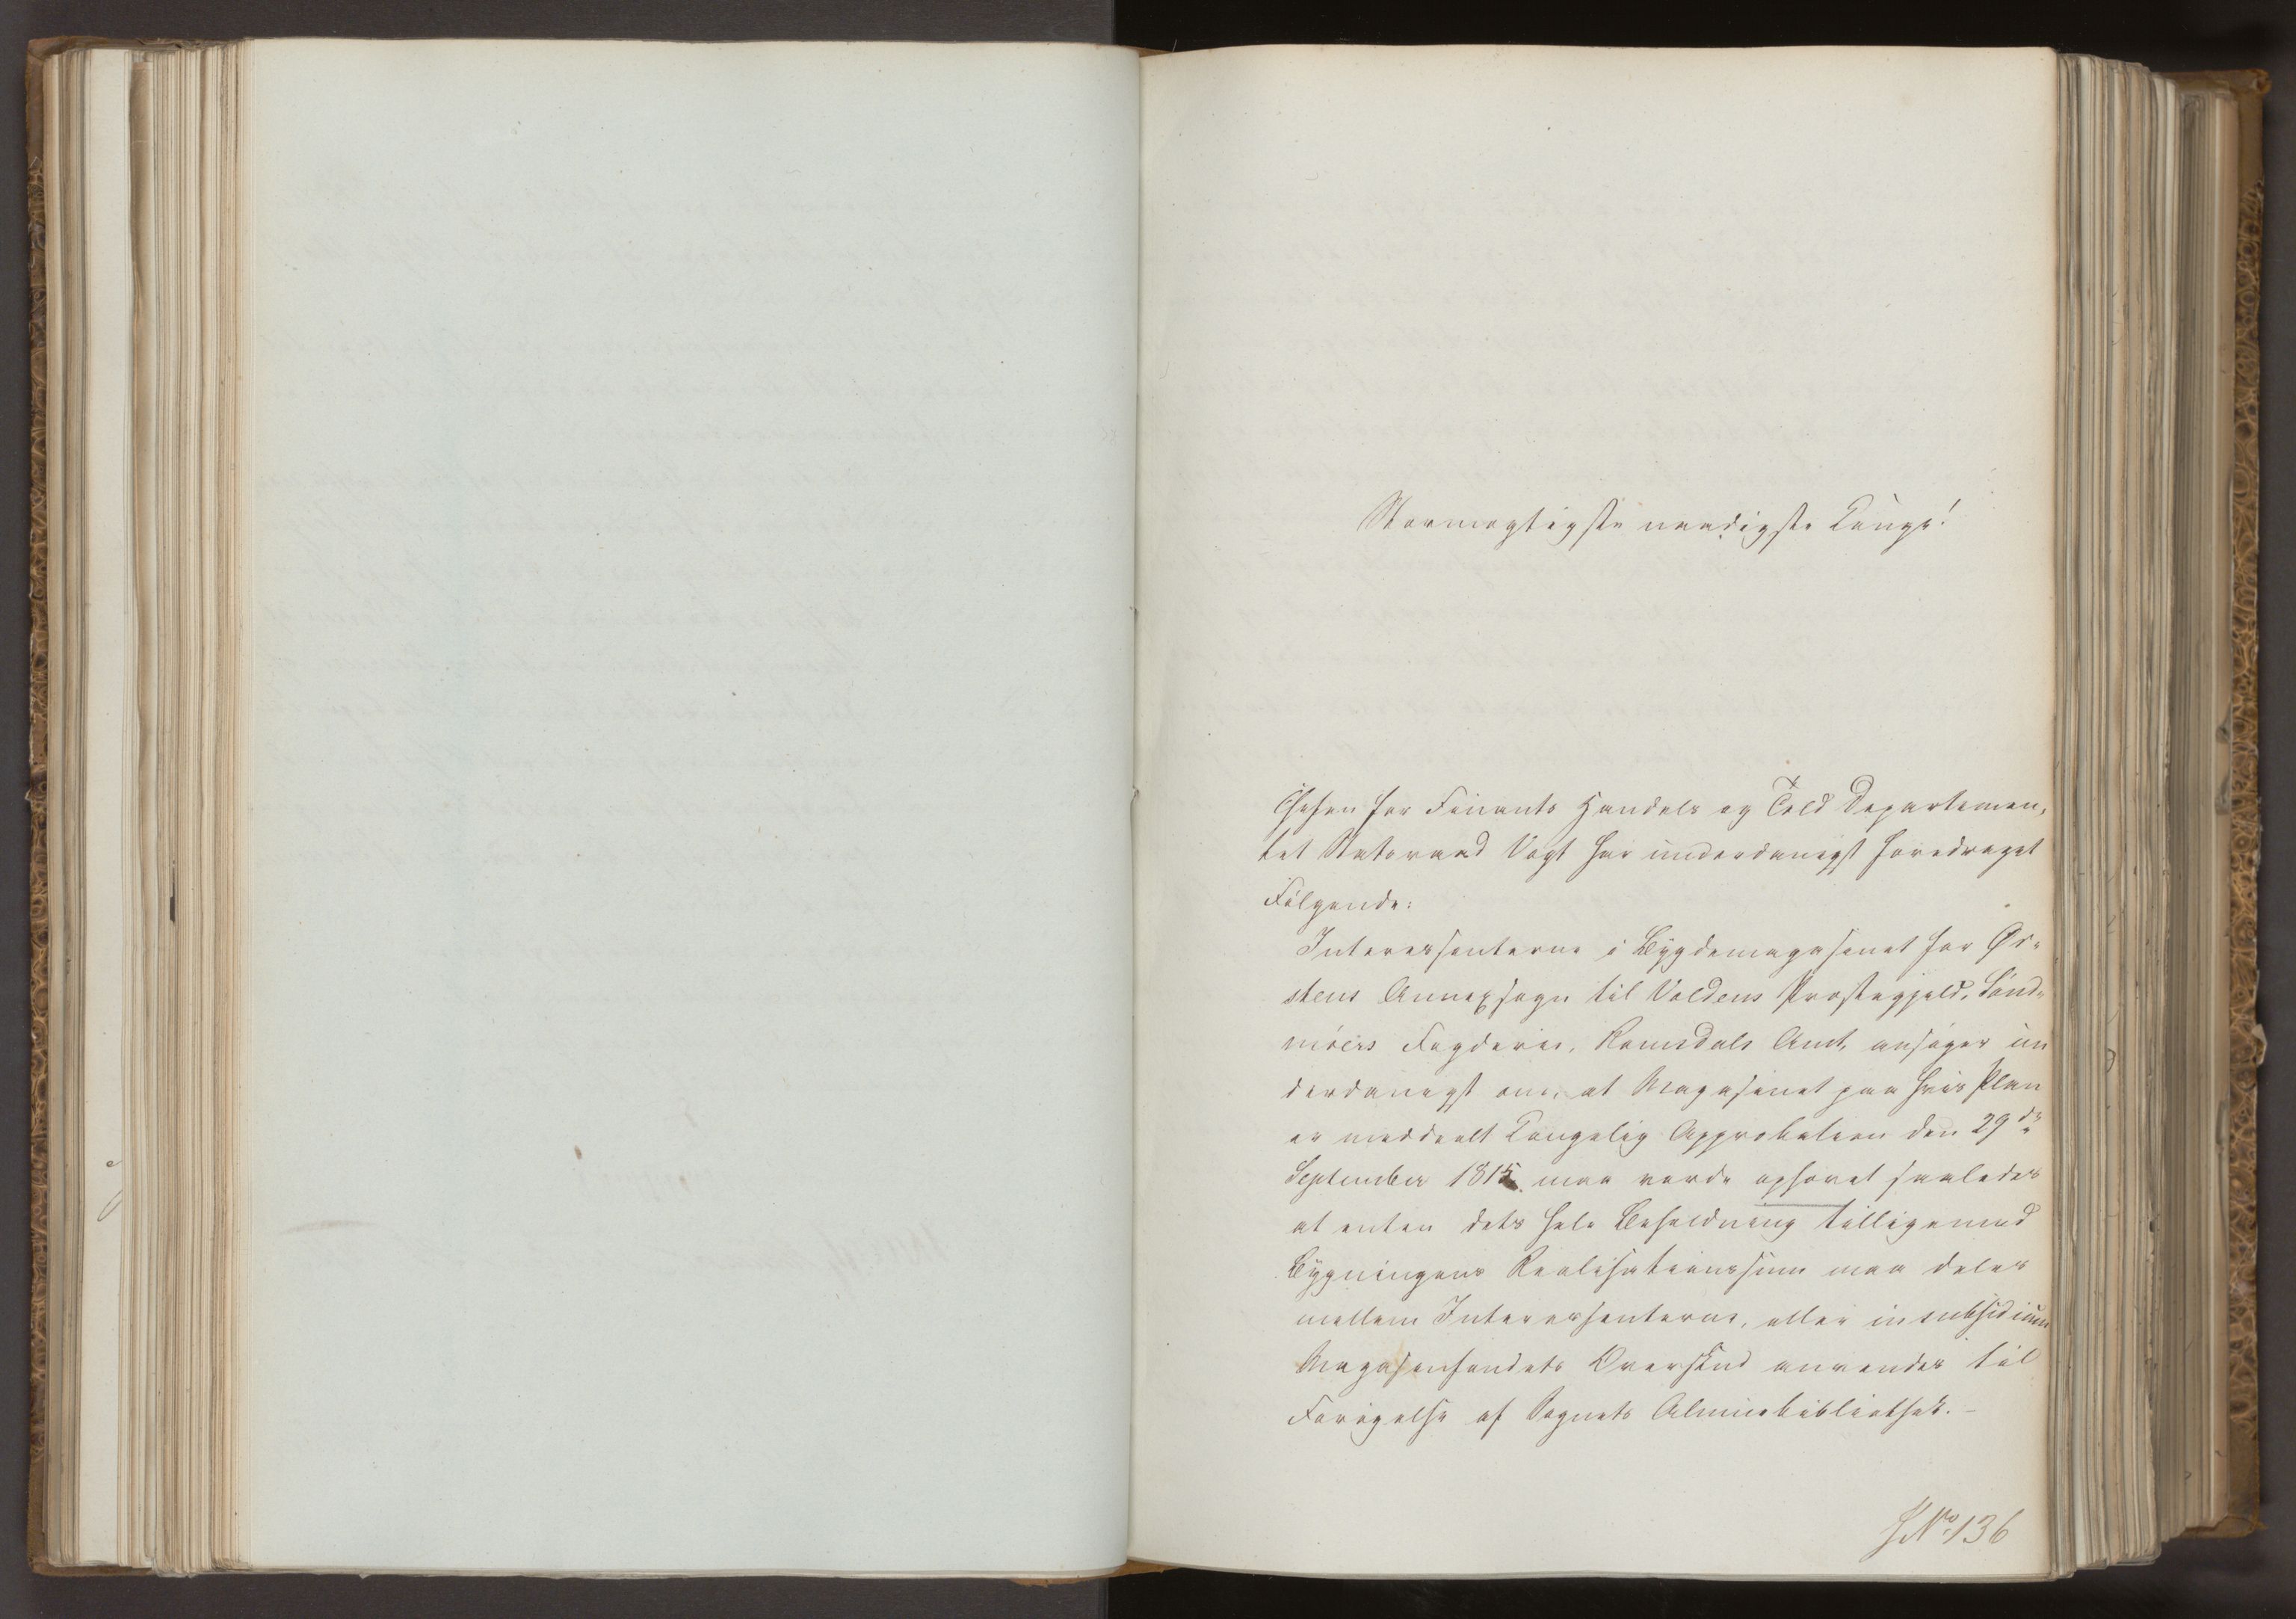 Stormægtigste naadigste Konge!
Chefen for Finants Handels og Told Departemen,
tet Statsraad Vogt har underdanigst foredraget
Følgende:
Interessenterne i Bygdemagasinet for Ør-
stens Annexsogn til Voldens Præstegjeld, Sønd-
møers Fogderie, Romsdals Amt, ansøger un
derdanigst om, at Magasinet paa hvis Plan
er meddeelt Kongelig Approbation den 29de
September 1815 maa vorde ophævet saaledes
at enten dets hele Beholdning tilligemed
Bygningens Realisationssum maa deles
mellem Interessenterne, eller in subsidium
Magasinfondets Overskud anvendes til
Forøgelse af Sognets Almuebibliothek.-
JNo 136